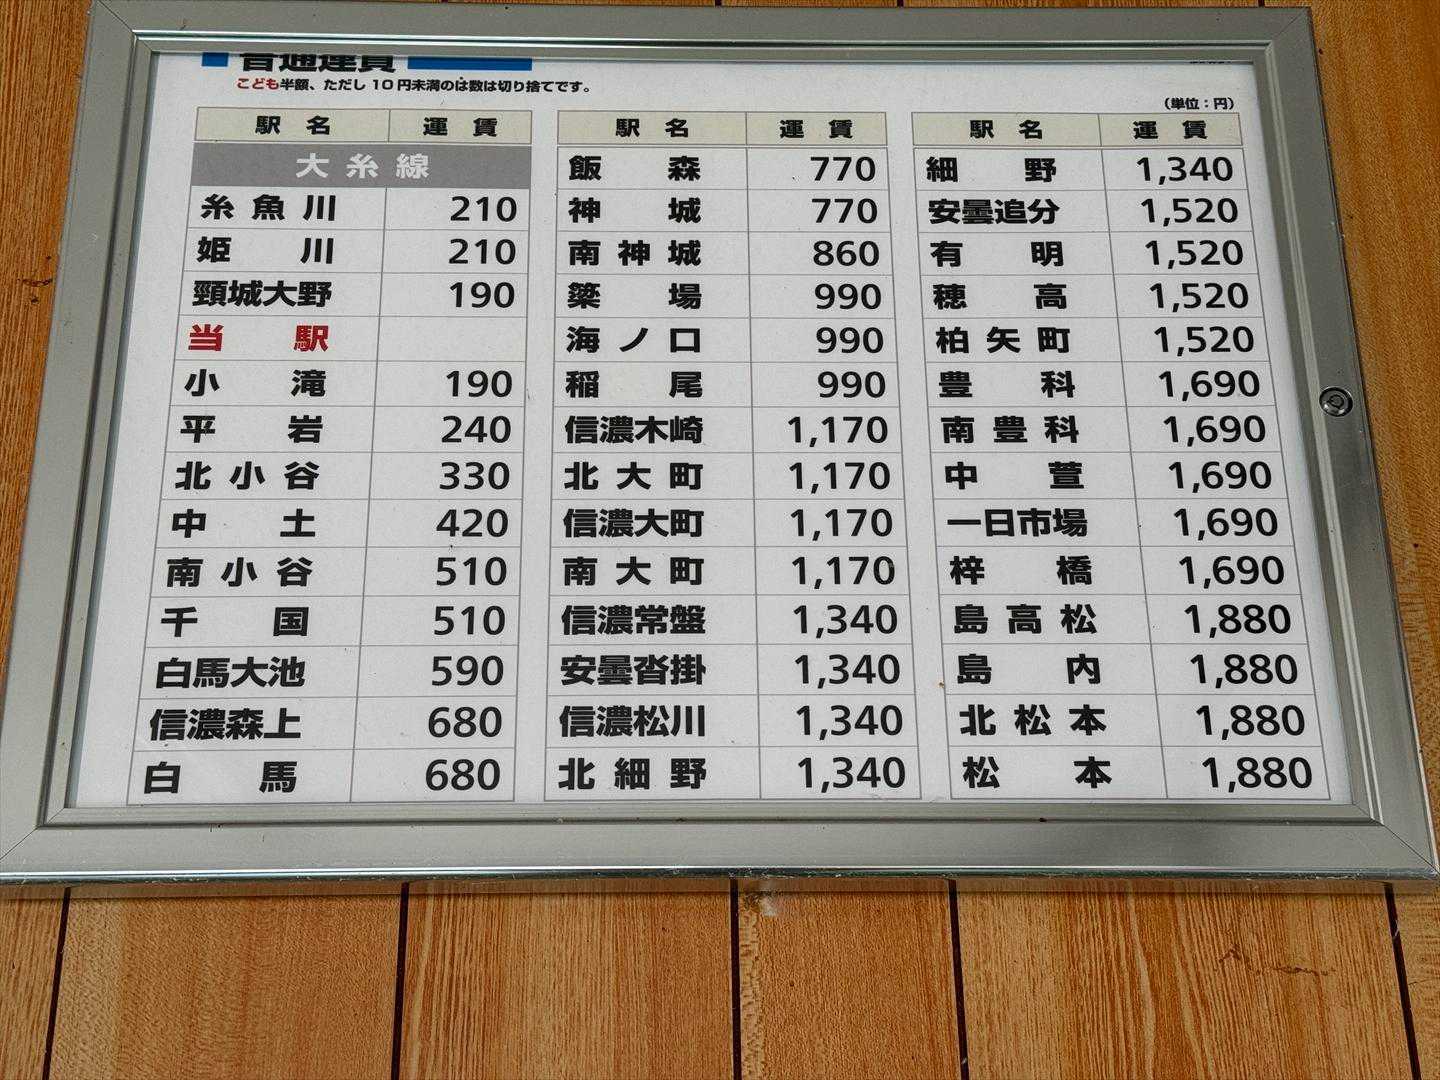 普通運賃
こども半額、ただし 10 円未満のは数は切り捨てです。
(単位:円)
駅名 運賃
大糸線
糸魚川 210
姫川 210
頸城大野 190
当駅
小滝 190
平岩 240
北小谷 330
中土 420
南小谷 510
千国 510
白馬大池 590
信濃森上 680
白馬 680
駅名 運賃
飯森 770
神城 770
南神城 860
簗場 990
海ノ口 990
稲尾 990
信濃木崎 1,170
北大町 1,170
信濃大町 1,170
南大町 1,170
信濃常盤 1,340
安曇沓掛 1,340
信濃松川 1,340
北細野 1,340
駅名 運賃
細野 1,340
安曇追分 1,520
有明 1,520
穂高 1,520
柏矢町 1,520
豊科 1,690
南豊科 1,690
中萱 1,690
一日市場 1,690
梓橋 1,690
島高松 1,880
島内 1,880
北松本 1,880
松本 1,880